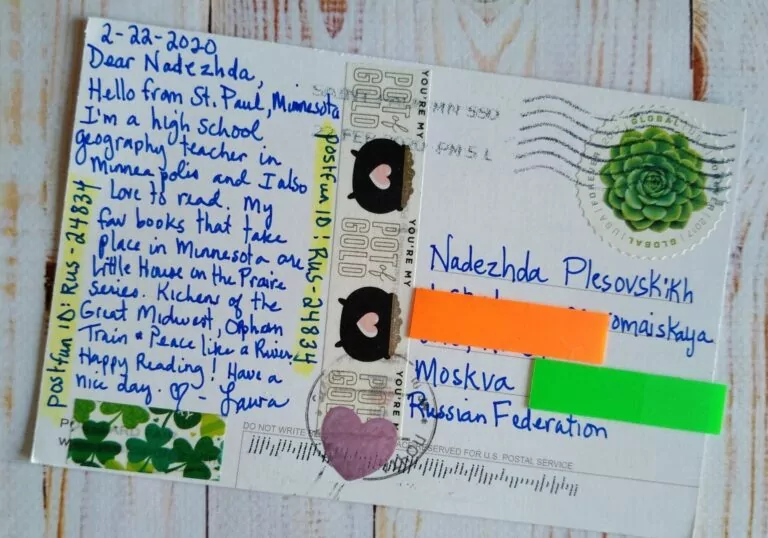 2-22-2020
Dear Nadezhda,
Hello from St. Paul, Minnesota
I'm a high school
geography teacher in
Minneapolis and I also
Love to read. My
fav books that take
Place in Minnesota are
Little House on the Prairie
series. Kichens of the
Great Midwest, Orphan
Train & Peace like a River.
Happy Reading! Have a
nice day. ♡ - Laura
postfun ID: Rus-24834
postfun ID: Rus-24834
YOU'RE MY
POT of
GOLD
YOU'RE MY
POT of
GOLD
YOU'RE MY
POT of
GOLD
MN 550
FEB 2020 PM 5 L
GLOBAL
USA
FOREVER
2017
GLOBAL
Nadezhda Plesovskikh
omaiskaya
Moskva
Russian Federation
DO NOT WRITE
RESERVED FOR U.S. POSTAL SERVICE